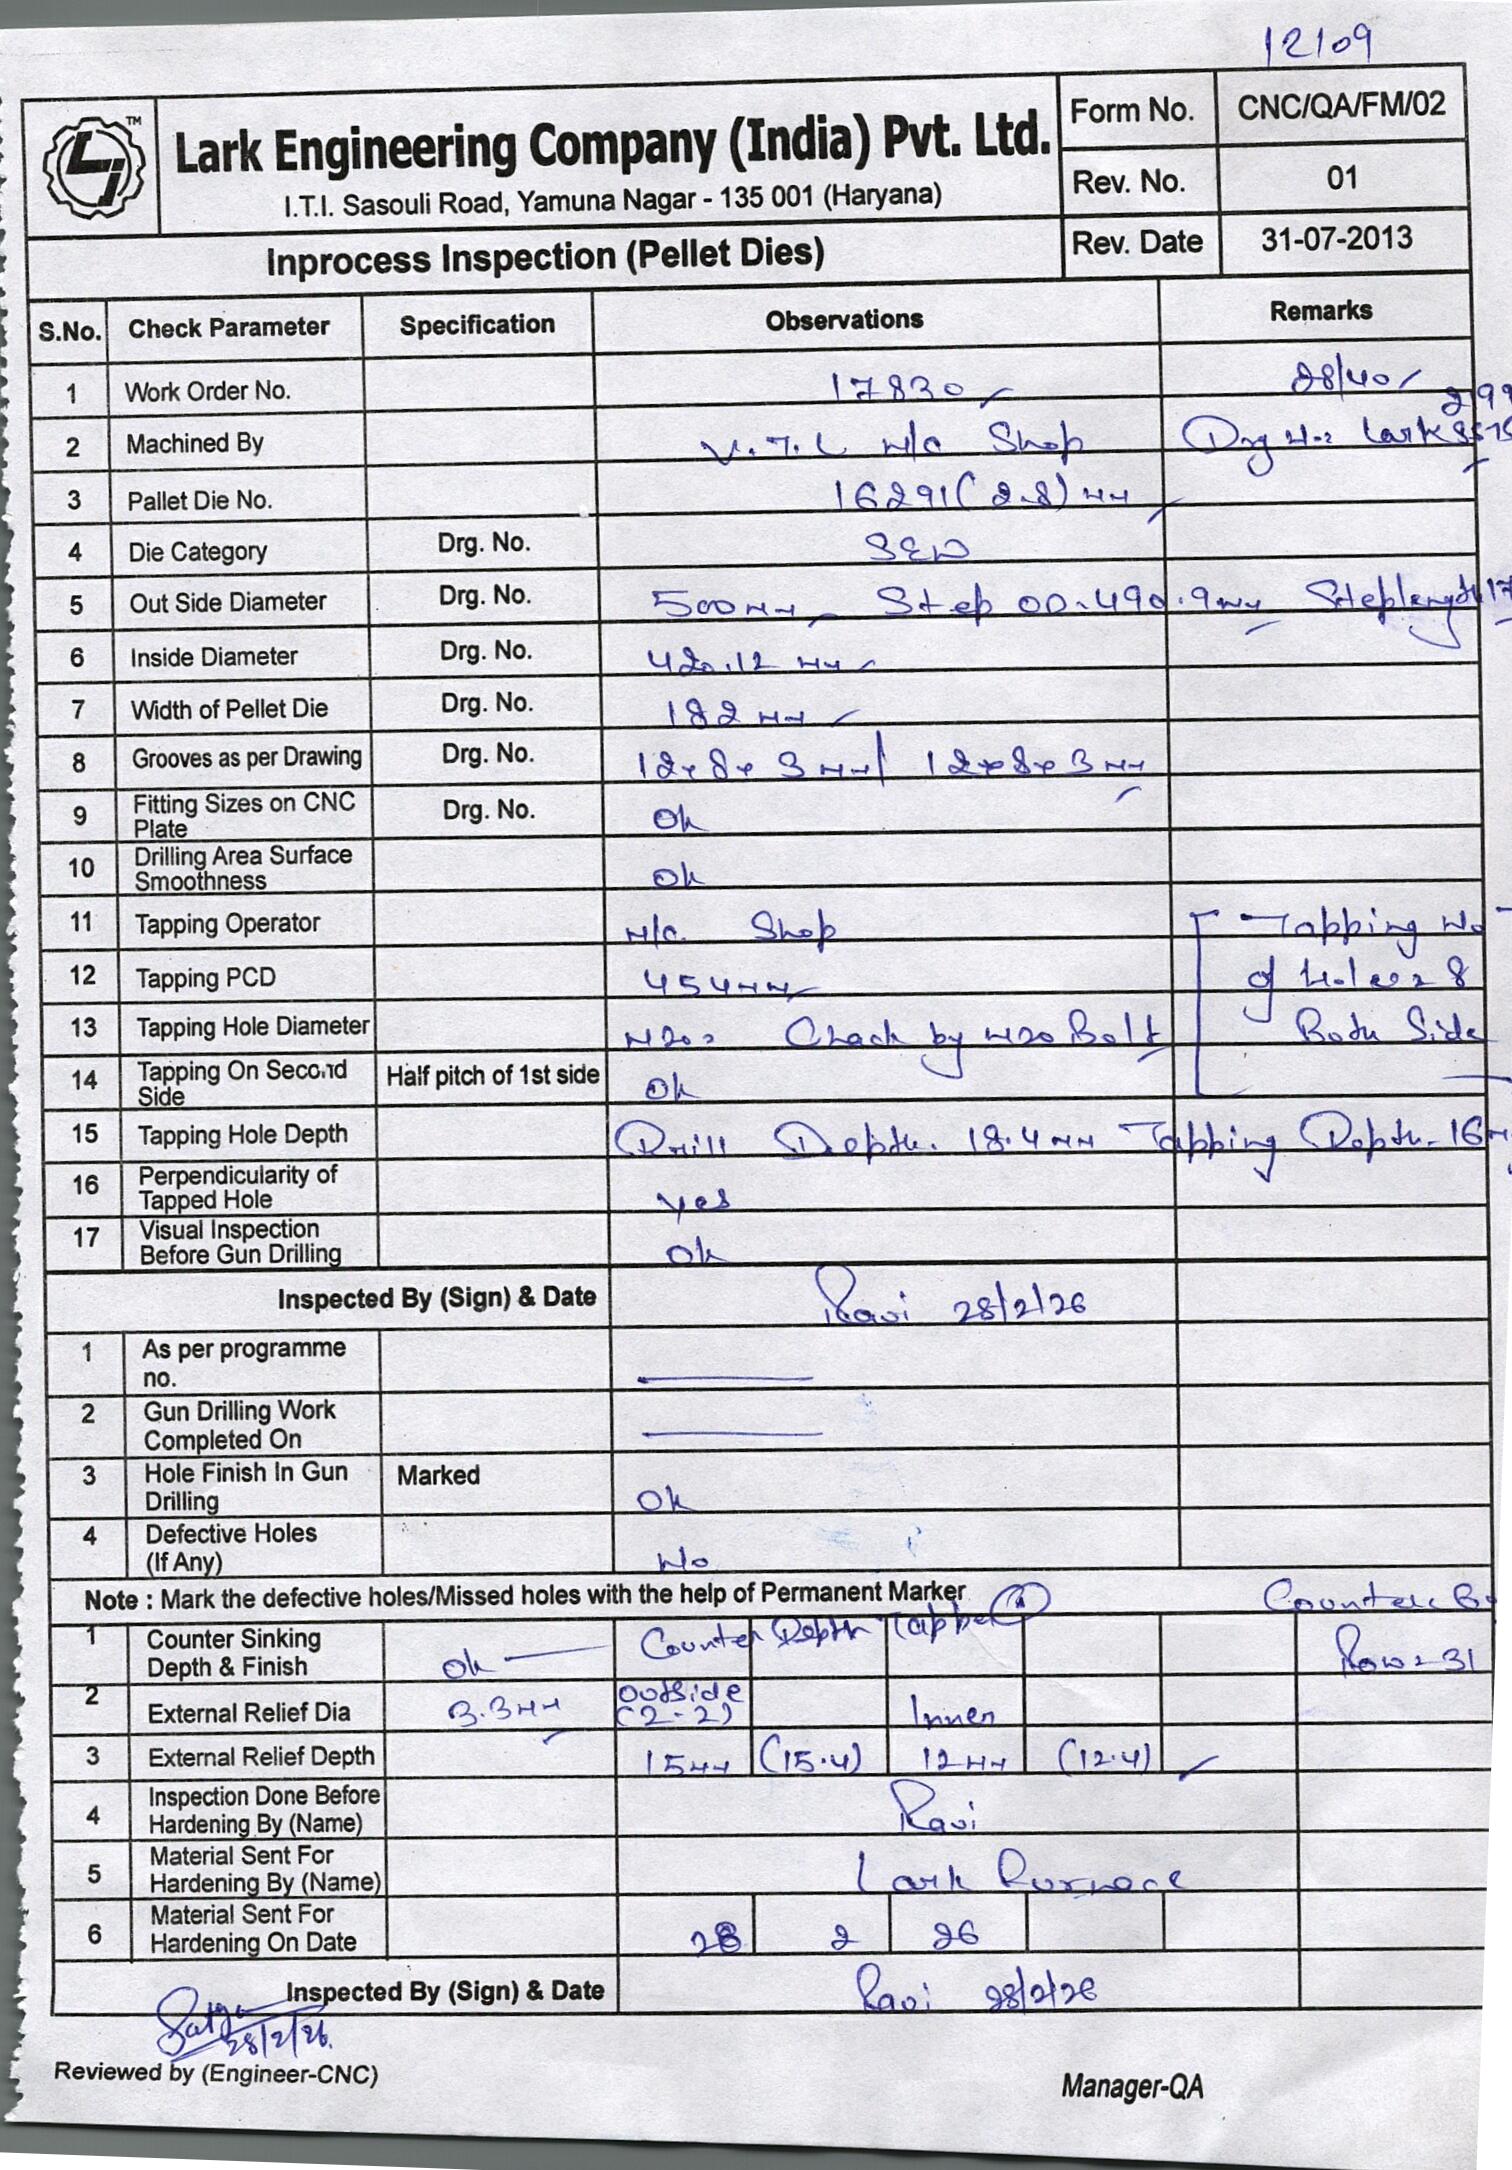 12109
Lark Engineering Company (India) Pvt. Ltd.
I.T.I. Sasouli Road, Yamuna Nagar - 135 001 (Haryana)
Form No. CNC/QA/FM/02
Rev. No. 01
Inprocess Inspection (Pellet Dies)
Rev. Date 31-07-2013
S.No. Check Parameter Specification Observations Remarks
1 Work Order No. 17830 28/40
2 Machined By V.T.L M/C Shop Drg Lark
3 Pallet Die No. 16291 (2.8) mm
4 Die Category Drg. No.
5 Out Side Diameter Drg. No. 500mm Step OD-490.9mm Step length 17
6 Inside Diameter Drg. No. 420.12 mm
7 Width of Pellet Die Drg. No. 182 mm
8 Grooves as per Drawing Drg. No. 12x8x3mm/ 12x8x3mm
9 Fitting Sizes on CNC Plate Drg. No. Ok
10 Drilling Area Surface Smoothness Ok
11 Tapping Operator M/c. Shop Tapping No
12 Tapping PCD 454mm of Holes 8
13 Tapping Hole Diameter M20 Check by M20 Bolt Both Side
14 Tapping On Second Side Half pitch of 1st side Ok
15 Tapping Hole Depth Drill Depth. 18.4mm Tapping Depth. 16
16 Perpendicularity of Tapped Hole yes
17 Visual Inspection Before Gun Drilling Ok
Inspected By (Sign) & Date Ravi 28/2/26
1 As per programme no.
2 Gun Drilling Work Completed On
3 Hole Finish In Gun Drilling Marked Ok
4 Defective Holes (If Any) No
Note : Mark the defective holes/Missed holes with the help of Permanent Marker
Counter
1 Counter Sinking Depth & Finish Ok Counter Depth Row 31
2 External Relief Dia 3.3mm Outside (2-2) Inner
3 External Relief Depth 15mm (15.4) 12mm (12.4)
4 Inspection Done Before Hardening By (Name) Ravi
5 Material Sent For Hardening By (Name) Lark Furnace
6 Material Sent For Hardening On Date 28 2 26
Inspected By (Sign) & Date Ravi 28/2/26
28/2/26
Reviewed by (Engineer-CNC)
Manager-QA